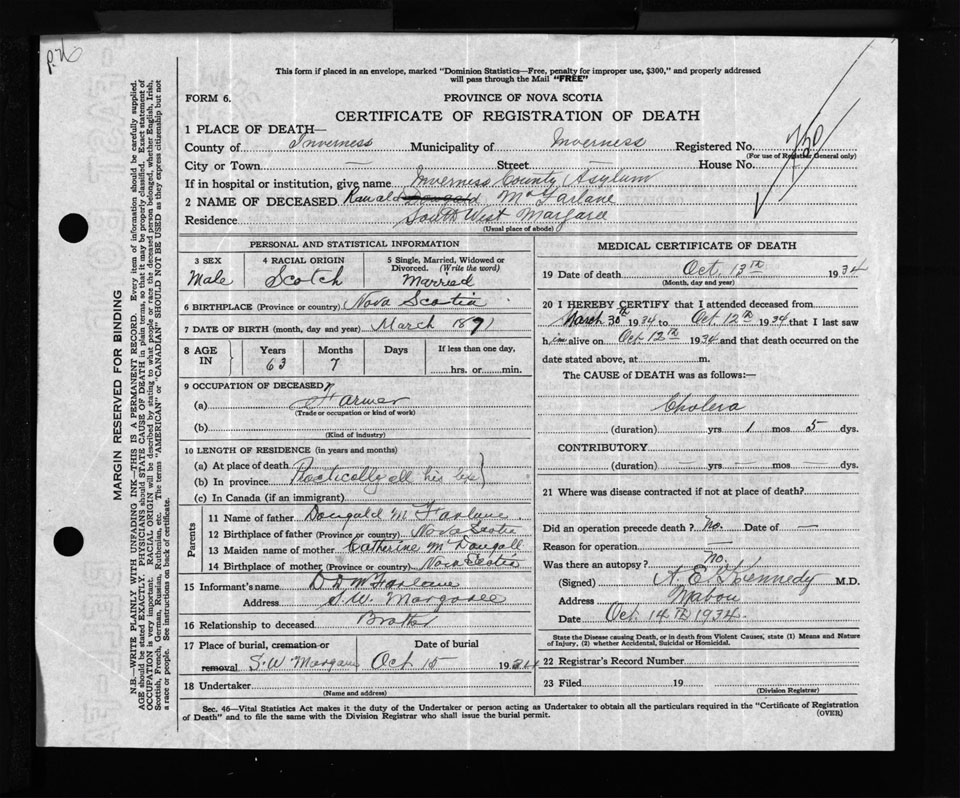 p.76
This form if placed in an envelope, marked "Dominion Statistics—Free, penalty for improper use, $300," and properly addressed
will pass through the Mail "FREE"
FORM 6.
PROVINCE OF NOVA SCOTIA
CERTIFICATE OF REGISTRATION OF DEATH
1 PLACE OF DEATH—
County of Inverness Municipality of Inverness Registered No. 730
(For use of Registrar General only)
City or Town — Street — House No.
If in hospital or institution, give name Inverness County Asylum
2 NAME OF DECEASED Ranald Dougald McFarlane
Residence South West Margaree
(Usual place of abode)
PERSONAL AND STATISTICAL INFORMATION
3 SEX 4 RACIAL ORIGIN 5 Single, Married, Widowed or
Divorced. (Write the word)
Male Scotch Married
6 BIRTHPLACE (Province or country) Nova Scotia
7 DATE OF BIRTH (month, day and year) March 1871
8 AGE IN Years Months Days If less than one day,
63 7 hrs. or min.
9 OCCUPATION OF DECEASED
(a) Farmer
(Trade or occupation or kind of work)
(b)
(Kind of industry)
10 LENGTH OF RESIDENCE (in years and months)
(a) At place of death
(b) In province Practically all his life
(c) In Canada (if an immigrant)
Parents
11 Name of father Dougald McFarlane
12 Birthplace of father (Province or country) Nova Scotia
13 Maiden name of mother Catherine McDougall
14 Birthplace of mother (Province or country) Nova Scotia
15 Informant's name D D McFarlane
Address S.W. Margaree
16 Relationship to deceased Brother
17 Place of burial, cremation or Date of burial
removal S.W Margaree Oct 15 1934
18 Undertaker
(Name and address)
MEDICAL CERTIFICATE OF DEATH
19 Date of death Oct. 13th 1934
(Month, day and year)
20 I HEREBY CERTIFY that I attended deceased from
March 30th 1934 to Oct 12th 1934 that I last saw
him alive on Oct 12th 1934 and that death occurred on the
date stated above, at m.
The CAUSE of DEATH was as follows:—
Cholera
(duration) yrs 1 mos 5 dys.
CONTRIBUTORY
(duration) — yrs — mos — dys.
21 Where was disease contracted if not at place of death?
Did an operation precede death? No. Date of —
Reason for operation —
Was there an autopsy? no.
(Signed) A. E. Kennedy M.D.
Address Mabou
Date Oct. 14th 1934.
State the Disease causing Death, or in death from Violent Causes, state (1) Means and Nature
of Injury, (2) whether Accidental, Suicidal or Homicidal.
22 Registrar's Record Number
23 Filed 19
(Division Registrar)
Sec. 46—Vital Statistics Act makes it the duty of the Undertaker or person acting as Undertaker to obtain all the particulars required in the "Certificate of Registration
of Death" and to file the same with the Division Registrar who shall issue the burial permit.
(OVER)
MARGIN RESERVED FOR BINDING
N.B.—WRITE PLAINLY WITH UNFADING INK—THIS IS A PERMANENT RECORD. Every item of information should be carefully supplied.
AGE should be stated EXACTLY. PHYSICIANS should STATE CAUSE OF DEATH in plain terms, so that it may be properly classified. Exact statement of
OCCUPATION is very important. RACIAL ORIGIN will be described by stating to what people or race the deceased person belonged, whether English, Irish,
Scottish, French, German, Russian, Ruthenian, etc. The terms "AMERICAN" or "CANADIAN" SHOULD NOT BE USED as they express citizenship but not
a race or people. See instructions on back of certificate.